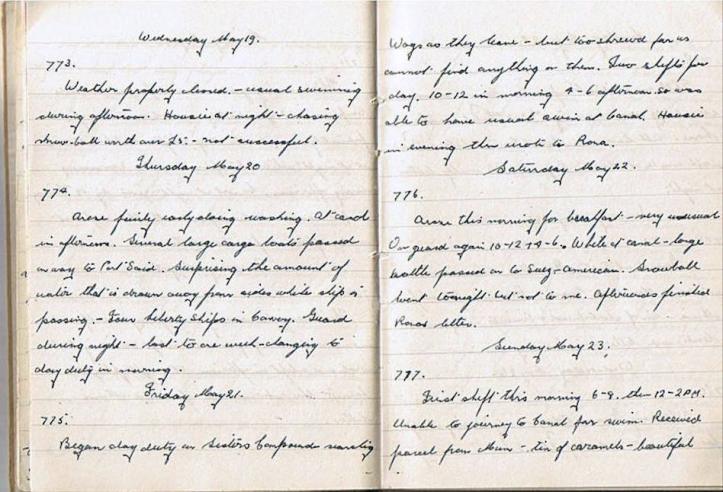 Wednesday May 19.
773.
Weather properly closed, - usual swimming
during afternoon. Housie at night - chasing
snow-ball worth over £5. - not successful.
Thursday May 20
774.
Arose fairly early doing washing. At canal
in afternoon. Several large cargo boats passed
on way to Port Said. Surprising the amount of
water that is drawn away from sides while ship is
passing. - Four Liberty Ships in Convoy. Guard
during night - last to are week - changing to
day duty in morning.
Friday May 21.
775.
Began day duty on Sisters Compound searching
Wogs as they leave - but too shrewd for us
cannot find anything on them. Two shifts per
day. 10-12 in morning 4-6 afternoon so was
able to have usual swim at Canal. Housie
in evening then wrote to Rora.
Saturday May 22.
776.
Arose this morning for breakfast - very unusual
On guard again 10-12 + 4-6. While at canal - large
battle passed on to Suez - American. Snowball
went tonight but not to me. Afterwards finished
Roras letter.
Sunday May 23.
777.
First shift this morning 6-8, then 12-2 PM.
Unable to journey to Canal for swim. Received
parcel from Mum - tin of caramels - beautiful